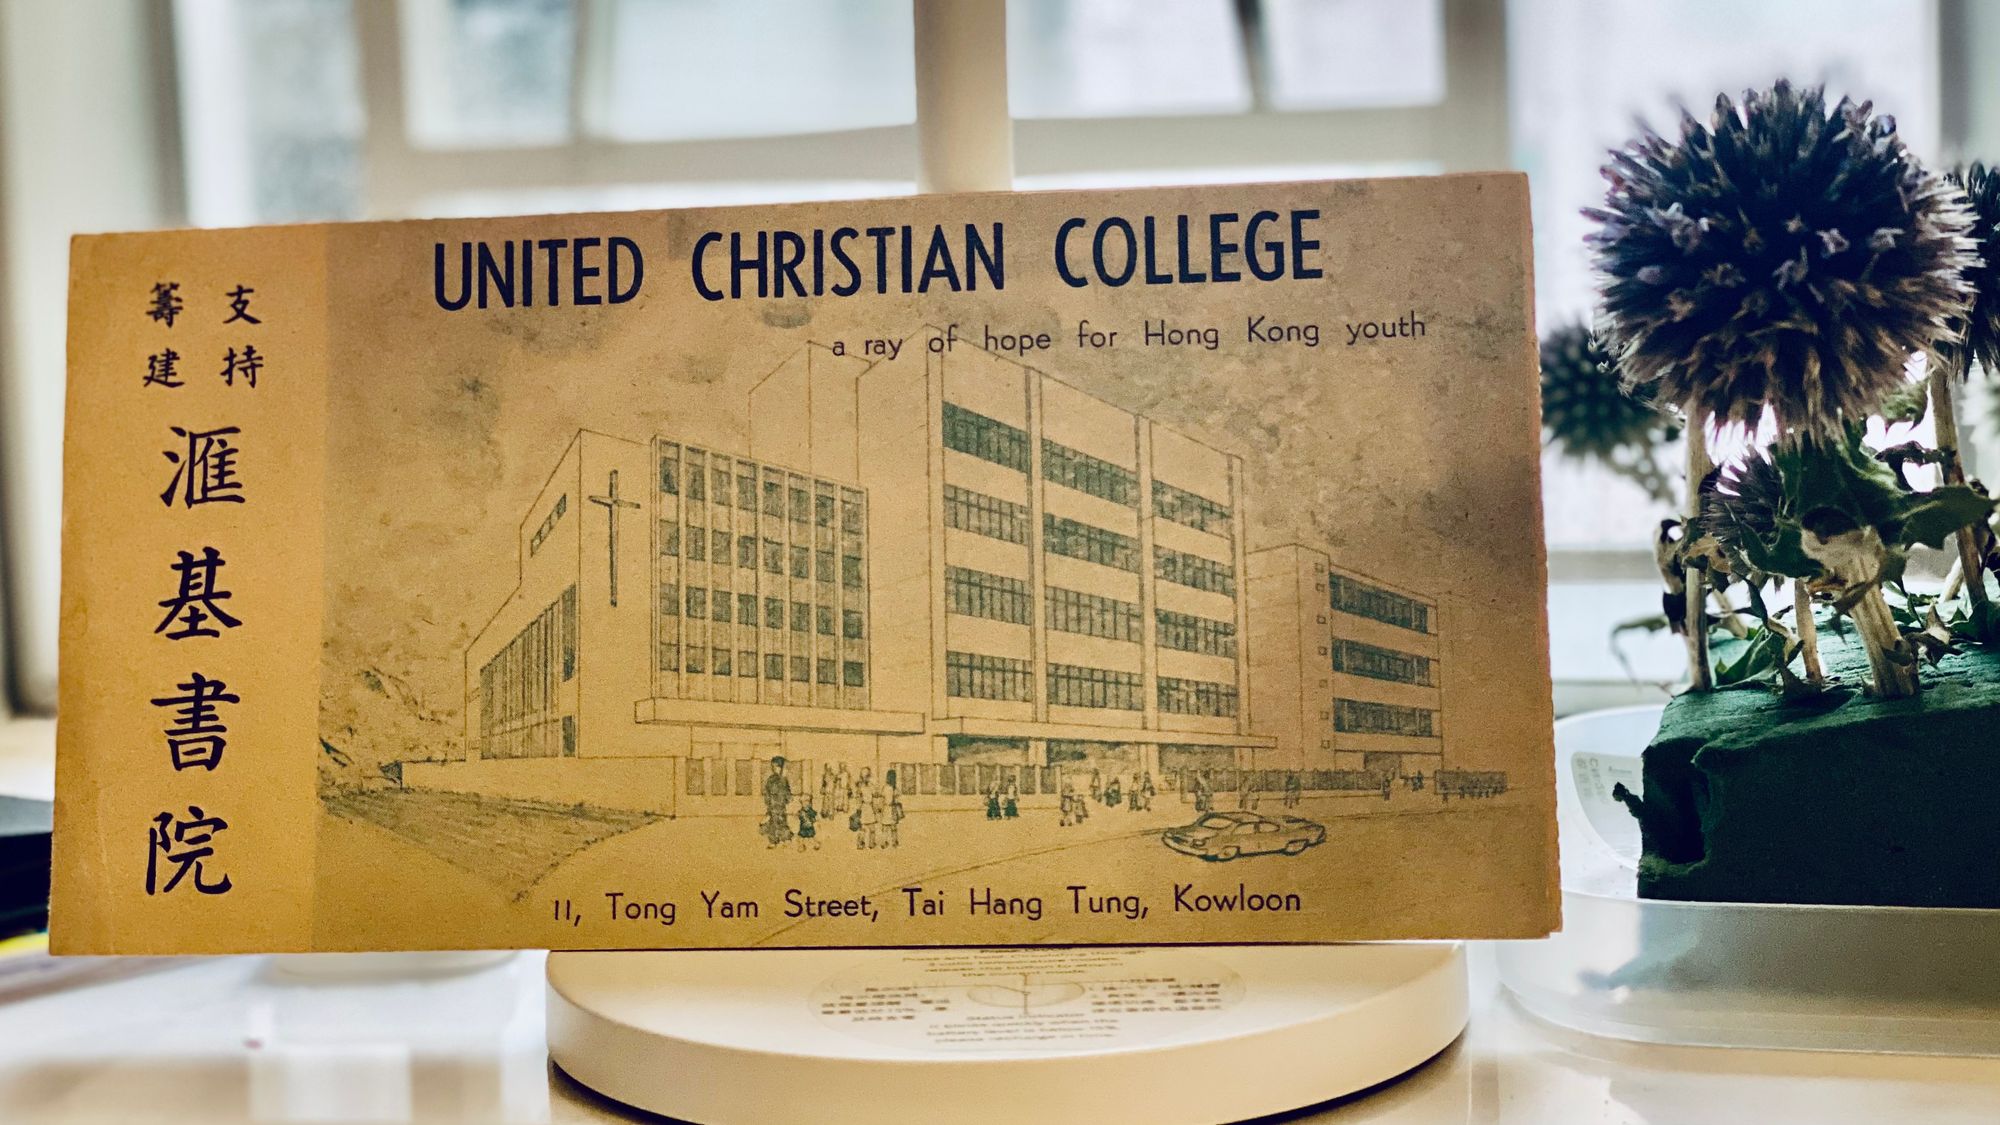 支持
籌建
滙基書院
UNITED CHRISTIAN COLLEGE
a ray of hope for Hong Kong youth
11, Tong Yam Street, Tai Hang Tung, Kowloon